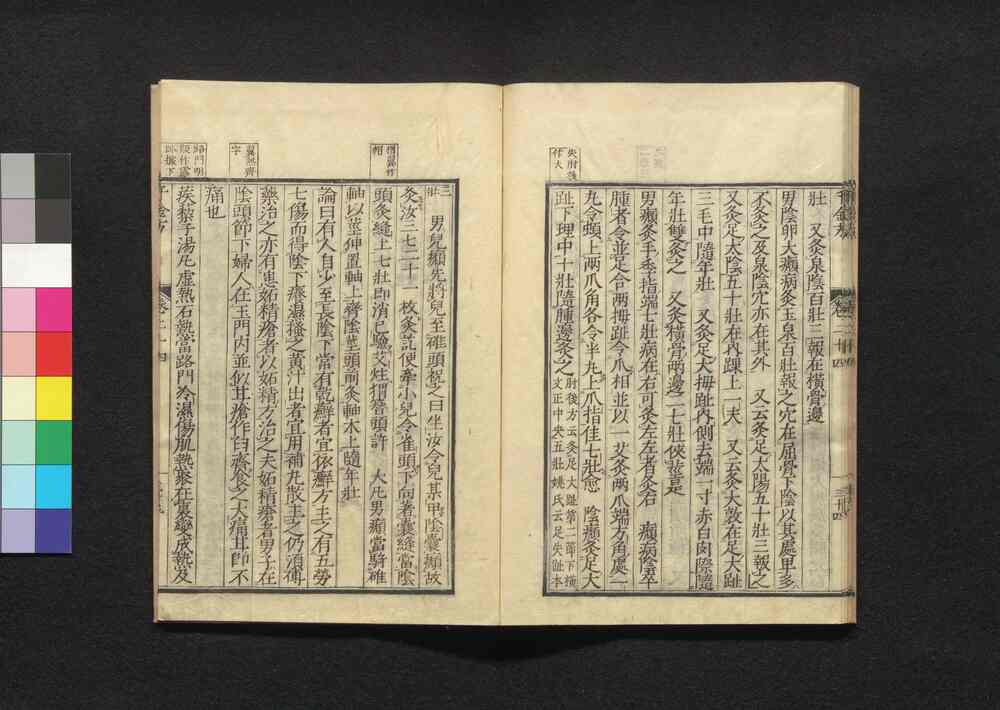 壯　又灸泉陰百壯三報在橫骨邊
男陰卵大㿗病灸玉泉百壯報之穴在屈骨下陰以其處卑多
不灸之及泉陰穴亦在其外　又云灸足太陽五十壯三報之
又灸足太陰五十壯在內踝上一夫　又云灸大敦在足大趾
三毛中隨年壯　又灸足大拇趾內側去端一寸赤白肉際隨
年壯雙灸之　又灸橫骨兩邊二七壯俠莖是
男㿗灸手季指端七壯病在右可灸左左者灸右　㿗病陰卒
腫者令並足合兩拇趾令爪相並以一艾灸兩爪端方角處一
丸令頓上兩爪角各令半丸上爪指佳七壯愈　陰㿗灸足大
趾下理中十壯隨腫邊灸之肘後方云灸足大趾第二節下橫
文正中央五壯姚氏云足大趾本
央肘後
作大
三壯
男兒㿗先將兒至碓頭祝之曰坐汝令兒某甲陰囊㿗故
灸汝三七二十一枚灸訖便牽小兒令雀頭下向著囊縫當陰
頭灸縫上七壯即消已驗艾炷㨍簪頭許　大凡男㿗當騎碓
軸以莖伸置軸上齊陰莖頭前灸軸木上隨年壯
論曰有人自少至長陰下常有乾癬者宜依癬方主之有五勞
七傷而得陰下癢濕搔之黃汁出者宜用補丸散主之仍須傅
藥治之亦有患妬精瘡者以妬精方治之夫妬精瘡者男子在
陰頭節下婦人在玉門內並似甘瘡作白齊食之大痛甘即不
痛也
蒺藜子湯凡虛熱石熱當路門冷濕傷肌熱聚在裏變成熱及